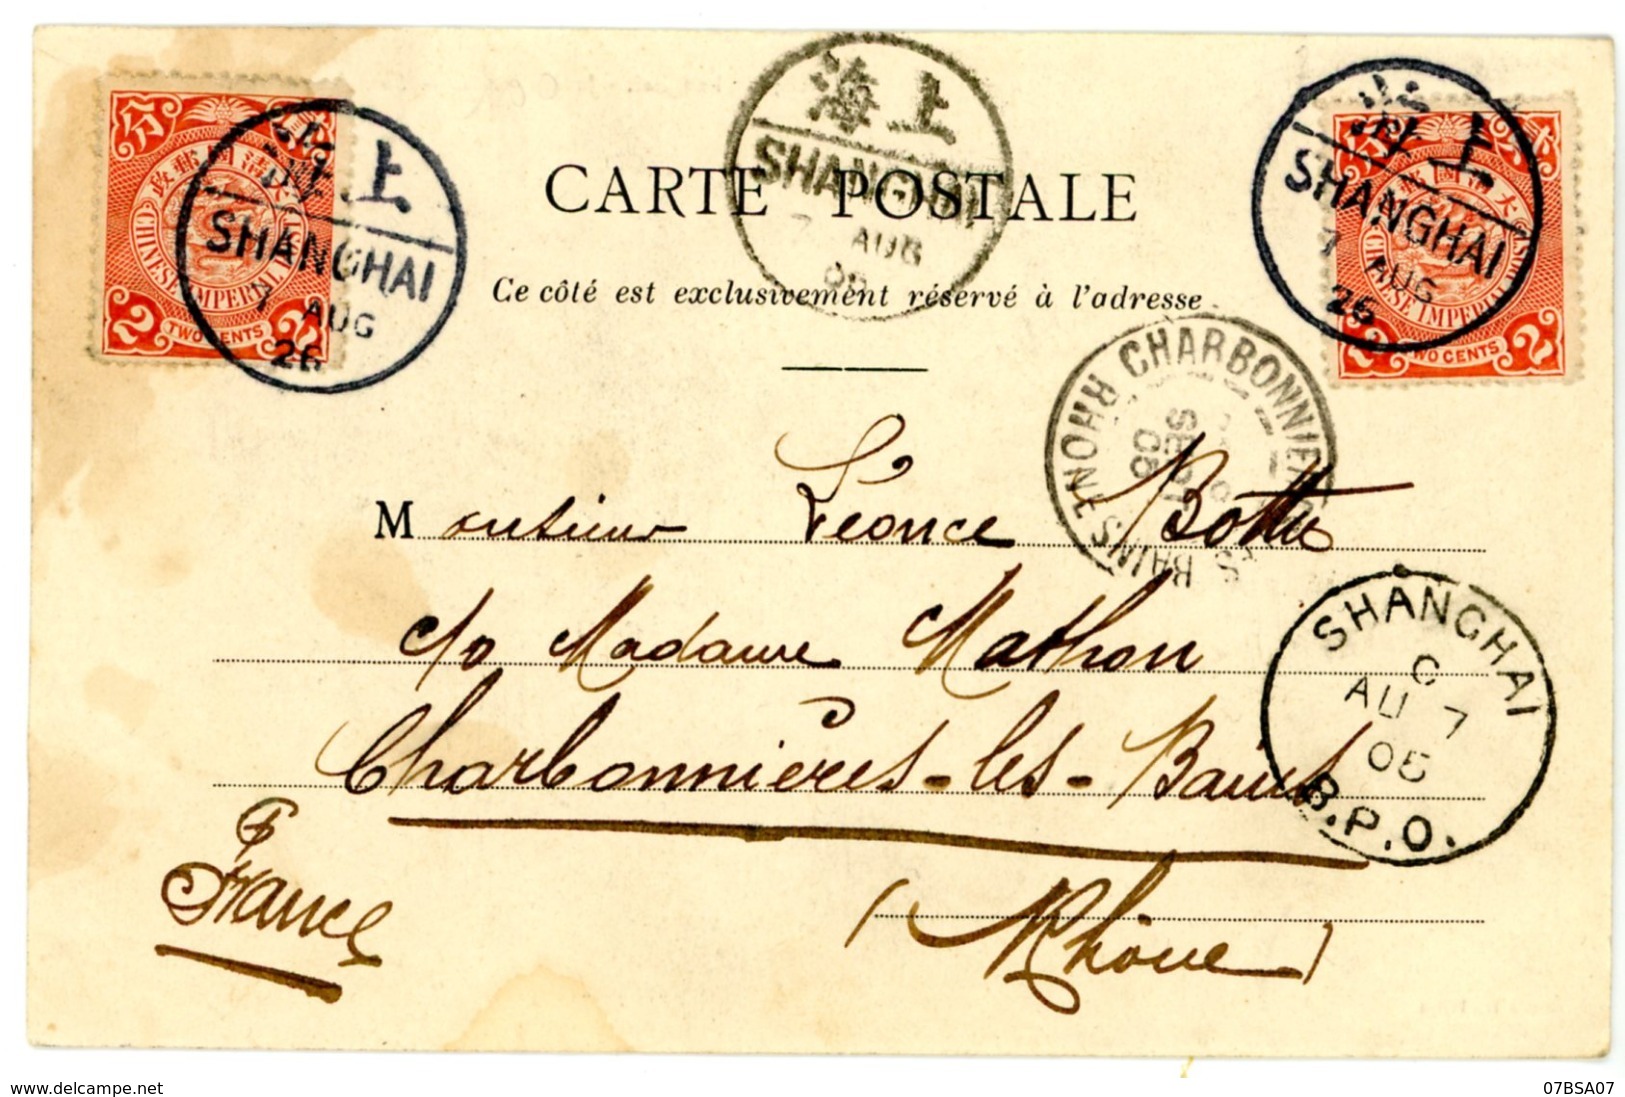 上海
SHANGHAI
7 AUG
26
CHINESE IMPERIAL
2 TWO CENTS 2
上海
SHANGHAI
7 AUG
05
上海
SHANGHAI
7 AUG
26
CHINESE IMPERIAL POST
2 TWO CENTS 2
CARTE POSTALE
Ce côté est exclusivement réservé à l'adresse
CHARBONNIERES LES BAINS RHONE
SEPT
05
Monsieur Léonce Bottu
c/o Madame Mathon
Charbonnières-les-Bains
(Rhône)
France
SHANGHAI
C
AU 7
05
B.P.O.
www.delcampe.net
07BSA07